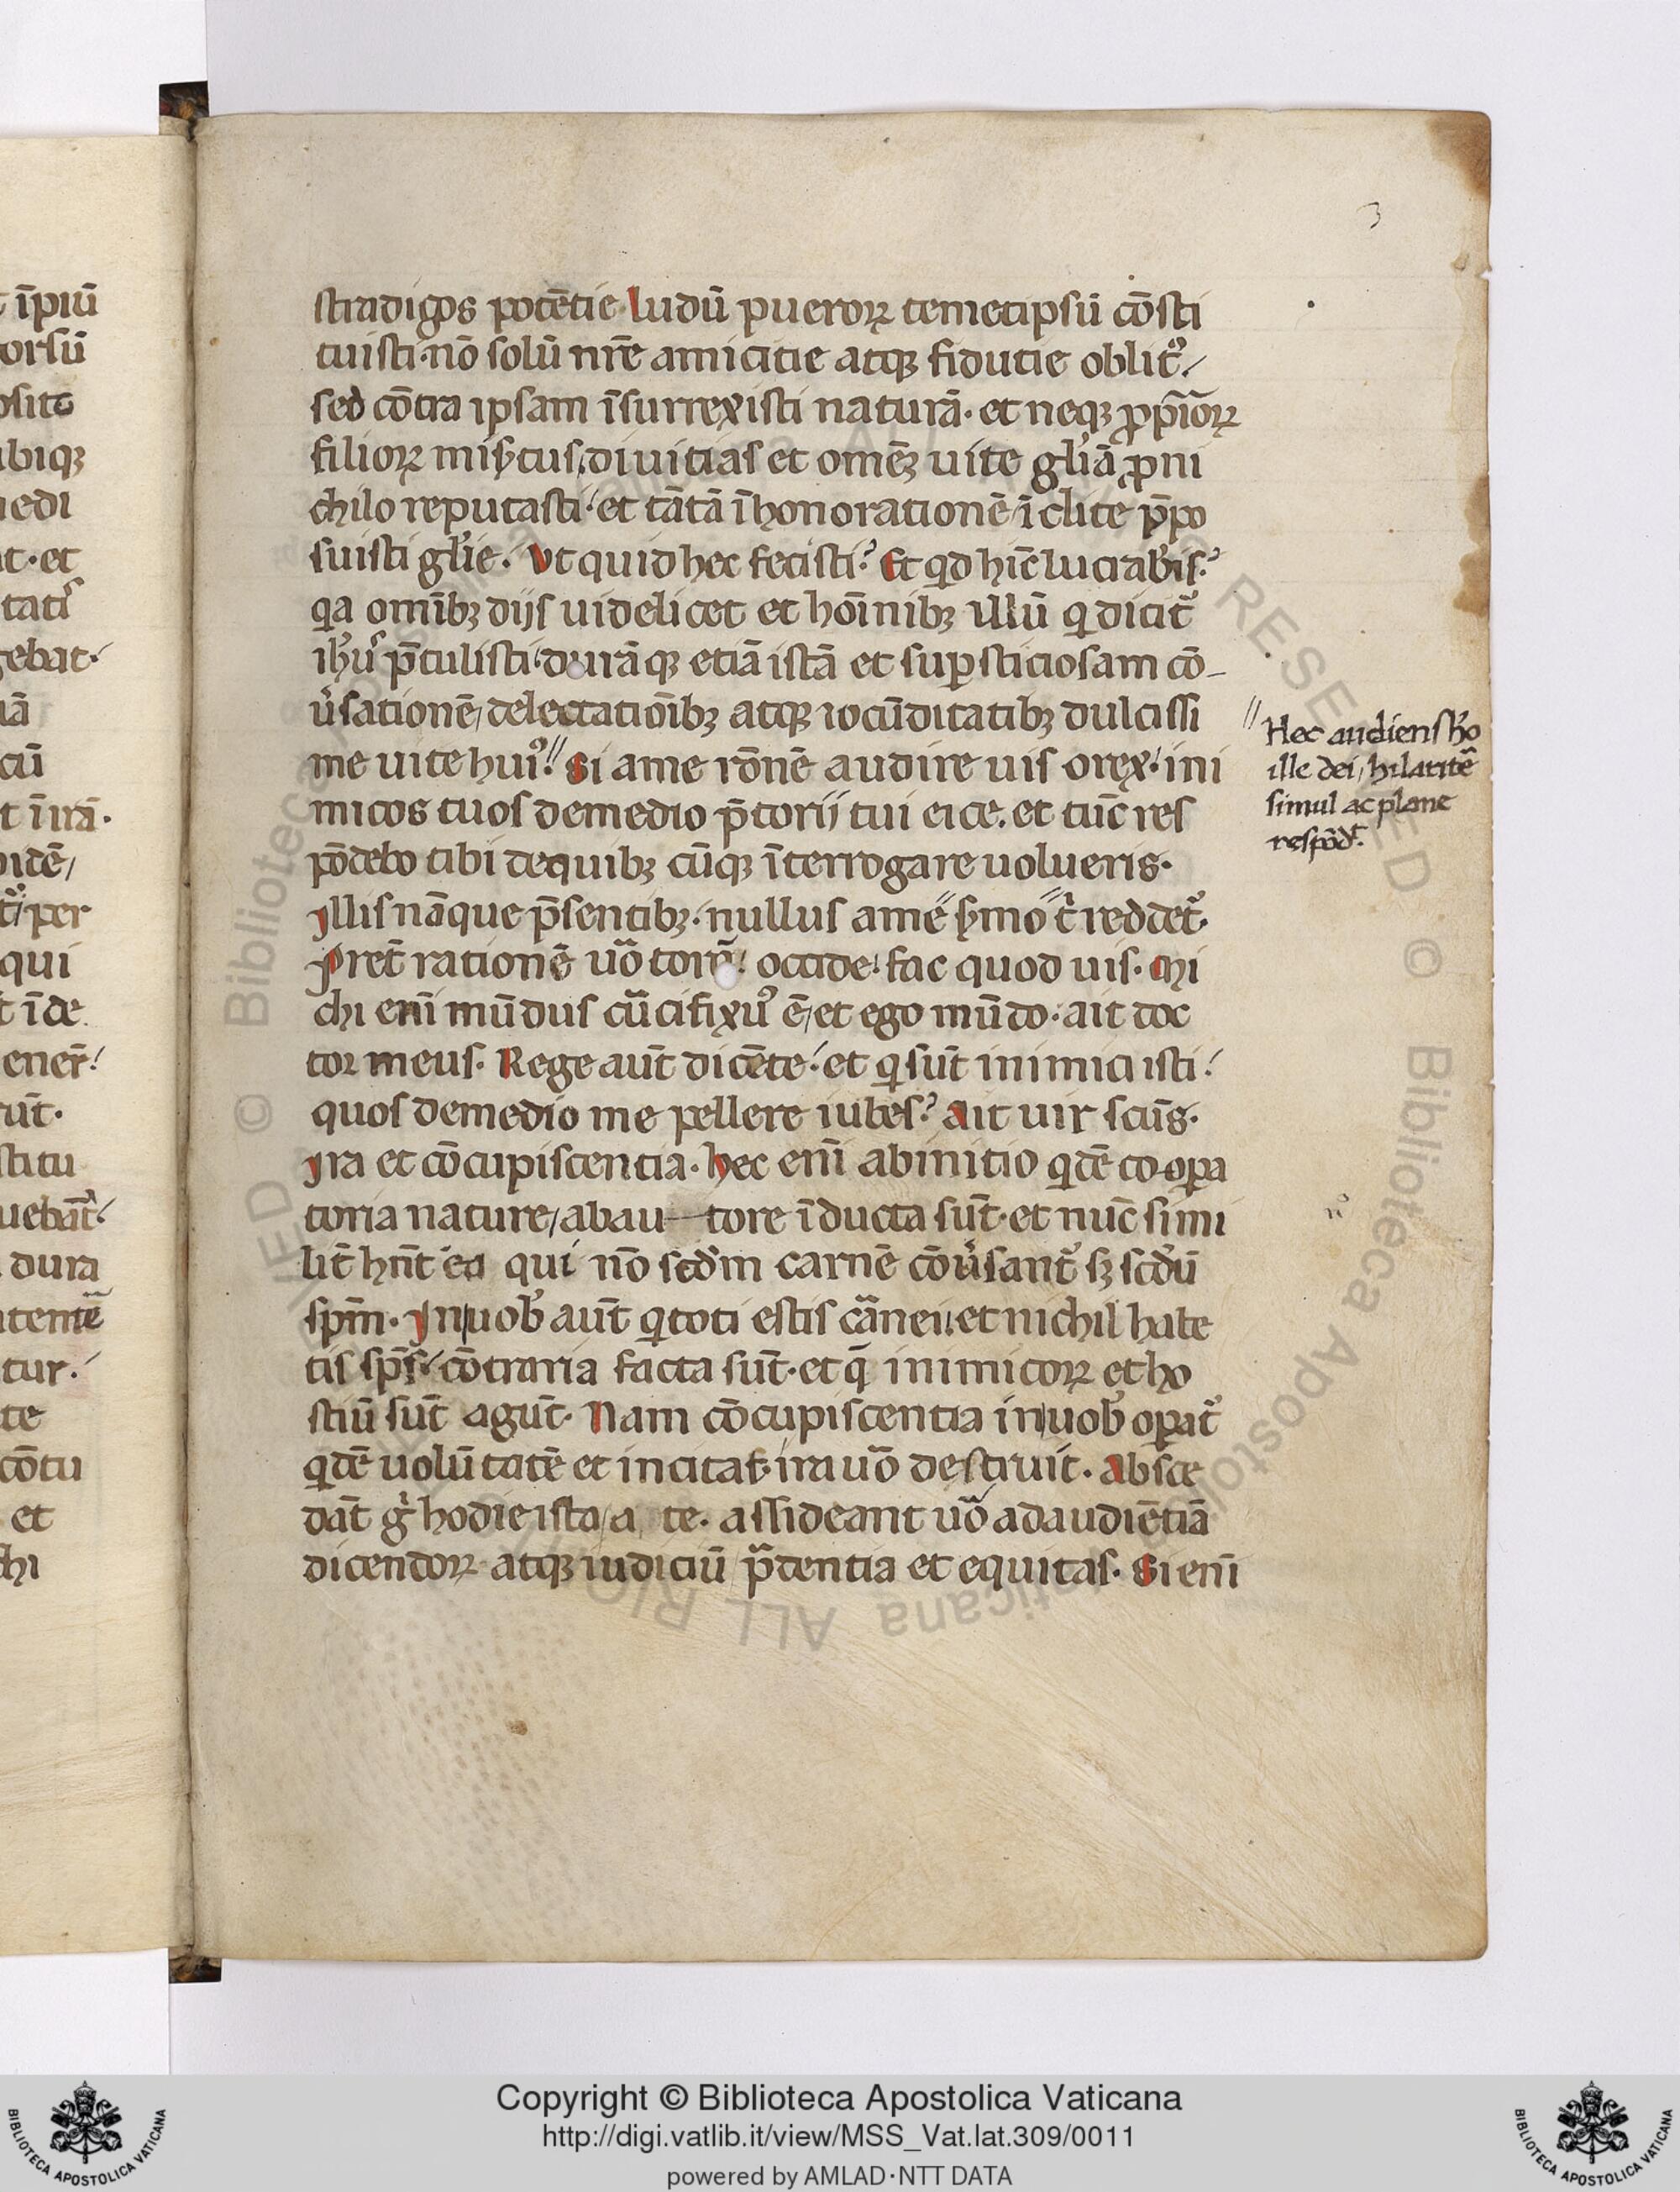 3
stradigos potētie. Ludū pueroꝝ temetipsū cōsti
tuisti. nō solū nr̄e amicitie atqꝫ fidutie oblitꝰ/
sed cōtra ipsam īsurrexisti naturā. et neqꝫ ꝓp̄ioꝝ
filioꝝ mis̾tus, diuitias et omēꝫ uite gl̓iā ꝓ ni
chilo reputasti. et tātā īhonorationē īclite p̄po
suisti gl̓ie. Ut quid hec fecisti? Et qd hīc luctab̓is?
qa omībꝫ dijs uidelicet et hoīnibꝫ illū q dicit᷑
ih̓us p̄tulisti. durāqꝫ etiā istā et suꝑsticiosam cō-
u̓sationē, delectatiōibꝫ atqꝫ iocūditatibꝫ dulcissi
me uite huiꝰ? // Si a me rōnē audire uis o rex. ini
micos tuos de medio p̄torij tui eice. et tūc res
pōdebo tibi de quibꝫ cūqꝫ īterrogare uolueris.
Illis nāque p̄sentibꝫ. nullus a me s̾mo t̓ reddet᷑.
Pret̄ rationē uō torq̄. occide. fac quod uis. Mi
chi enī mūdus cūcifixꝰ ē, et ego mūdo. ait doc
tor meus. Rege aūt dicēte. et q sūt inimici isti
quos de medio me pellere iubes? Ait uir scūs.
Ira et cōcupiscentia. Hec enī ab initio qdē cooꝑa
toria nature, ab au-tore īducta sūt. et nūc simi
lit̄ hn̄t ea qui nō scd̓m carnē cōu̓sant᷑ sꝫ scd̓ū
spm̄. In uob̓ aūt q toti estis cānei. et nichil habe
tis spūs. cōtraria facta sūt. et q̄ inimicoꝝ et ho
stiū sūt agūt. Nam cōcupiscentia in uob̓ oꝑat᷑
qdē uolūtatē et incitat. ira uō destruit. Absce
dāt g̓ hodie ista a te. assideant uō ad audiētiā
dicendoꝝ atqꝫ iudiciū p̄dentia et equitas. Si enī
// Hec audiens hō
ille dei, hilaritē
simul ac plane
respōdᵗ.
īpiū
orsū
osito
ubiqꝫ
medi
at. et
tatis
gebat.
cū
t ī irā.
idē/
per
qui
t īde
ener̄
ūt.
stitu
uebāt᷑
dura
tentē
tur.
te
cōtu
et
chi
Copyright © Biblioteca Apostolica Vaticana
http://digi.vatlib.it/view/MSS_Vat.lat.309/0011
powered by AMLAD·NTT DATA
BIBLIOTECA APOSTOLICA VATICANA
BIBLIOTECA APOSTOLICA VATICANA